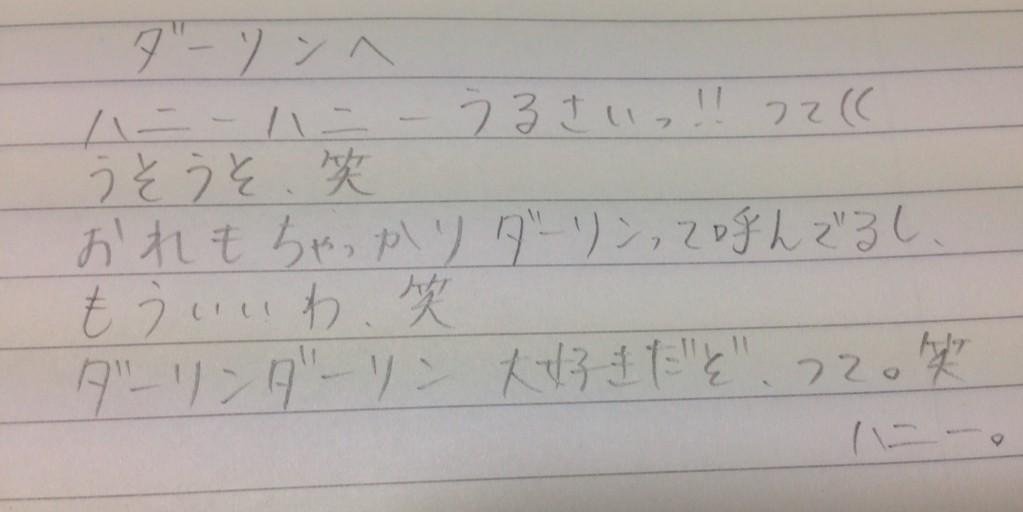 ダーリンへ
ハニーハニーうるさいっ!! って((
うそうそ、笑
おれもちゃっかりダーリンって呼んでるし、
もういいわ、笑
ダーリンダーリン 大好きだぞ、って。笑
ハニー。